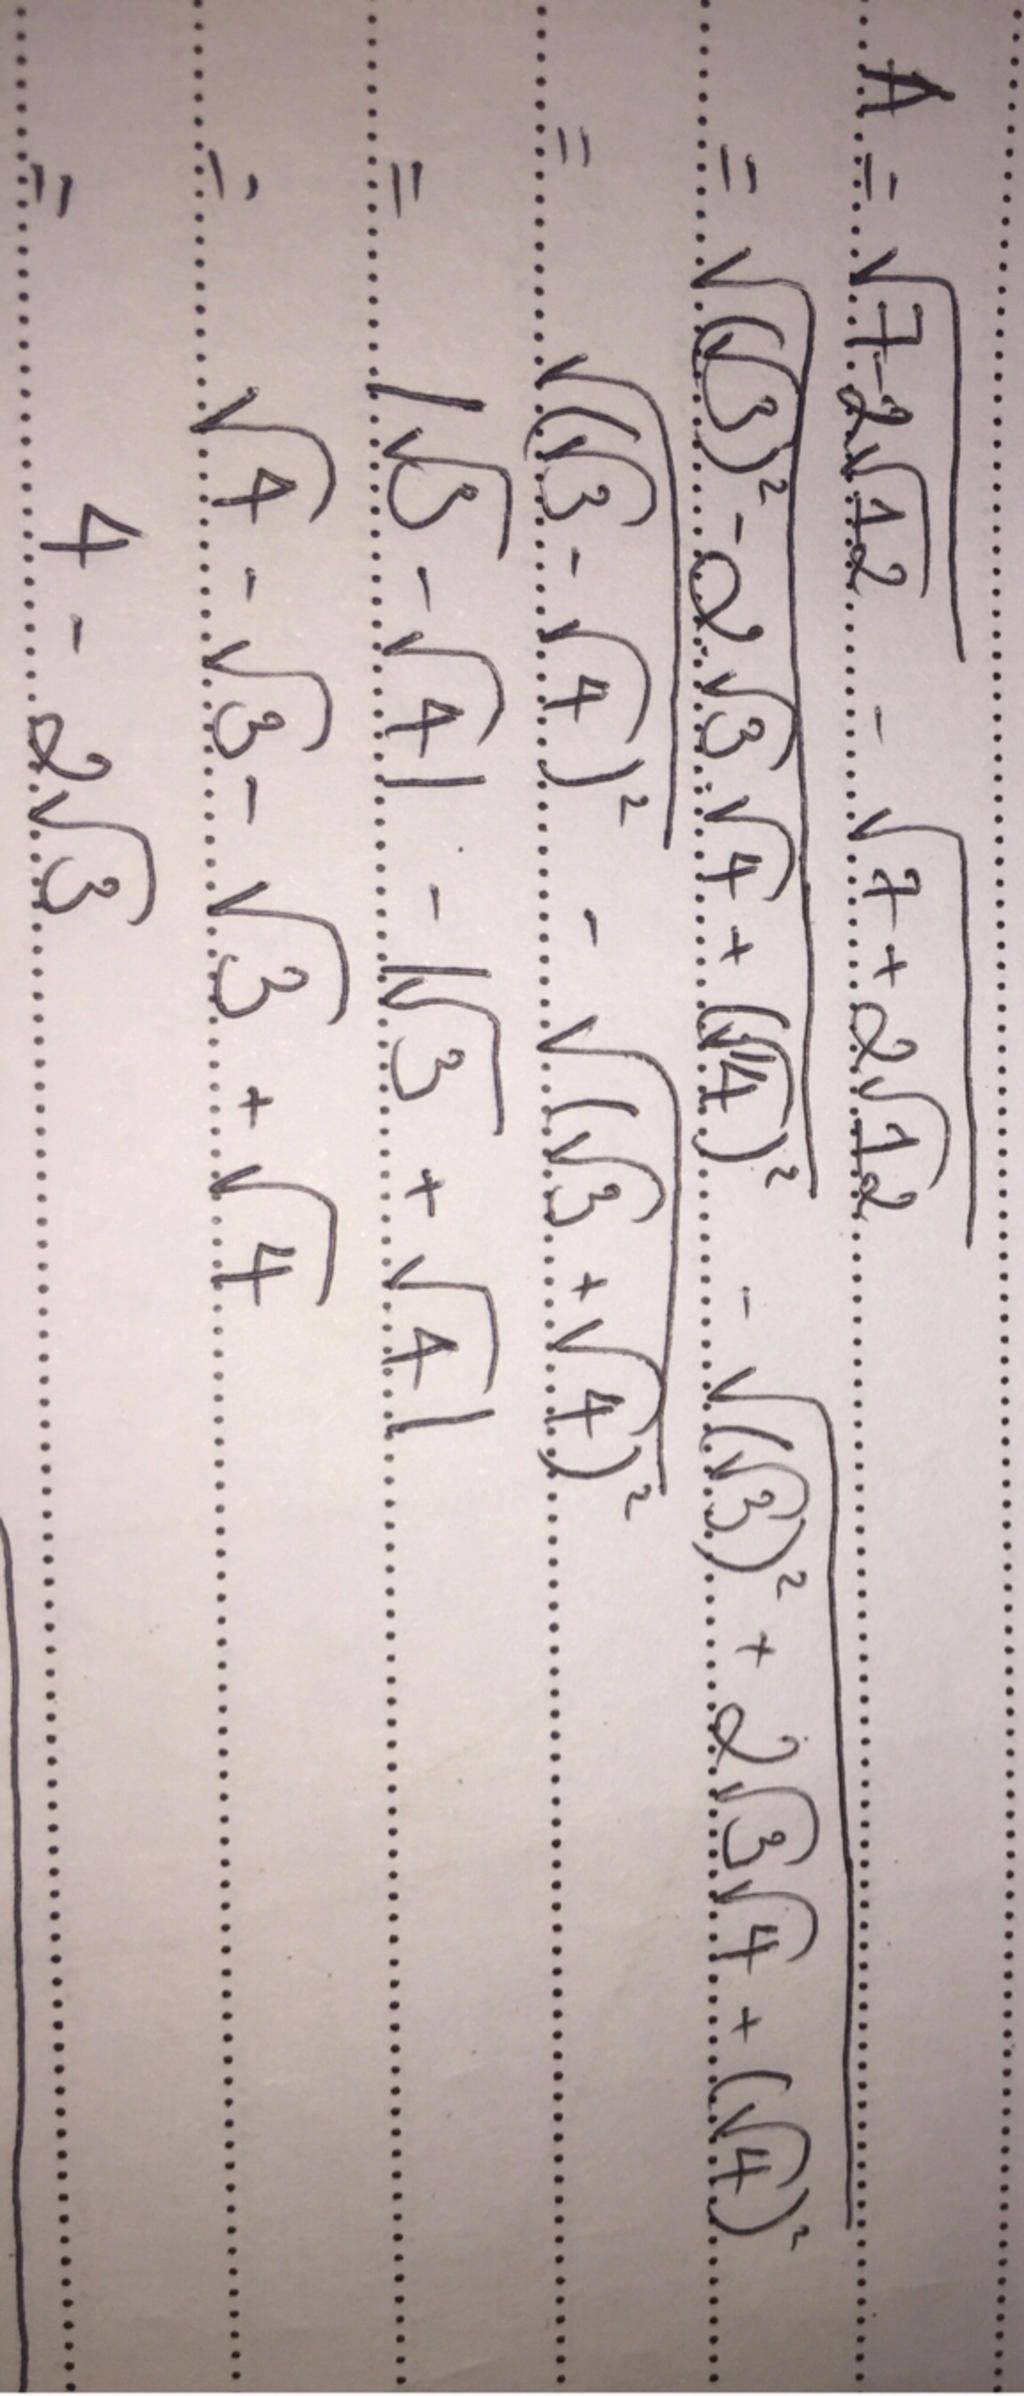 A = √(7-2√12) - √(7+2√12)
= √((√3)² - 2√3√4 + (√4)²) - √((√3)² + 2√3√4 + (√4)²)
= √((√3 - √4)²) - √((√3 + √4)²)
= |√3 - √4| - |√3 + √4|
= √4 - √3 - √3 + √4
= 4 - 2√3